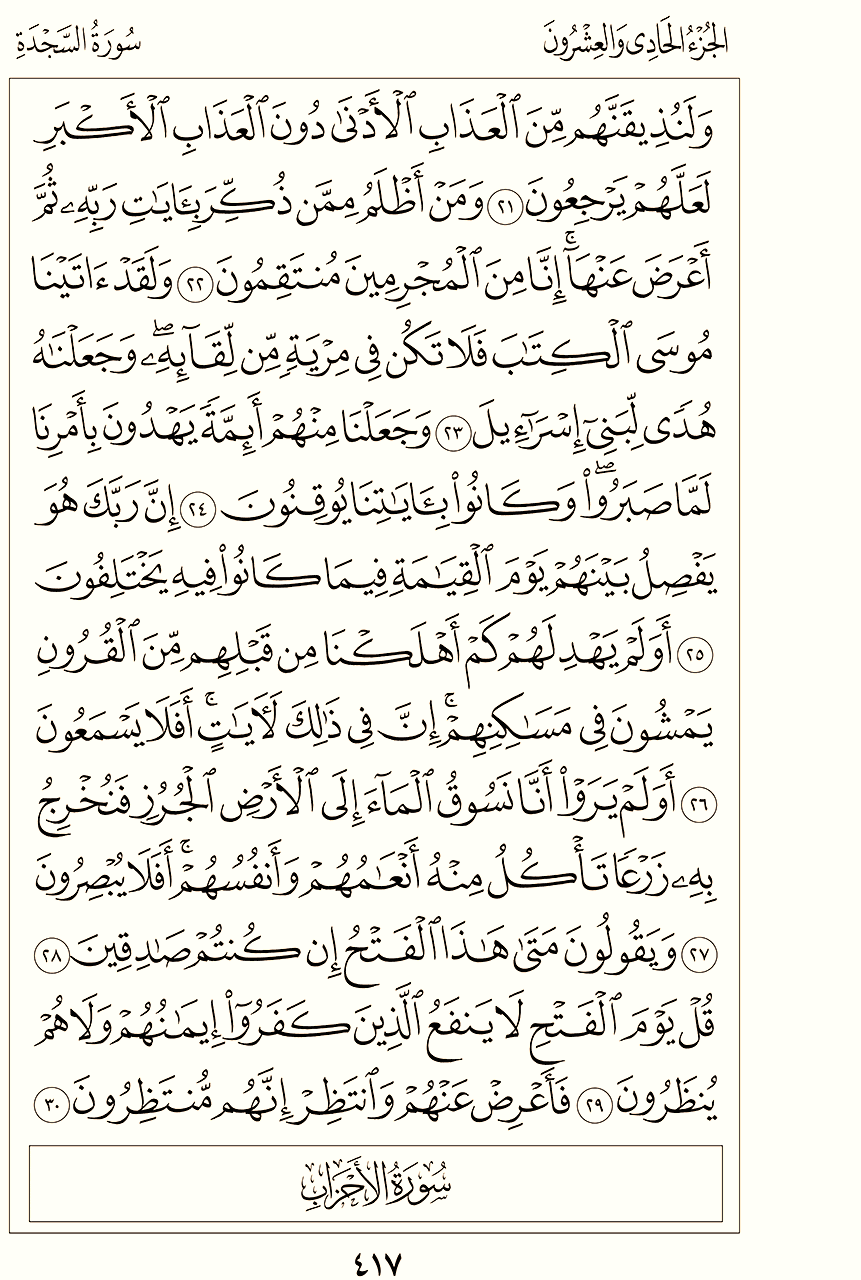 الجُزْءُ الحَادِى وَالعِشْرُونَ
سُورَةُ السَّجْدَةِ
وَلَنُذِيقَنَّهُم مِّنَ ٱلْعَذَابِ ٱلْأَدْنَىٰ دُونَ ٱلْعَذَابِ ٱلْأَكْبَرِ
لَعَلَّهُمْ يَرْجِعُونَ ٢١ وَمَنْ أَظْلَمُ مِمَّن ذُكِّرَ بِـَٔايَٰتِ رَبِّهِۦ ثُمَّ
أَعْرَضَ عَنْهَآ ۚ إِنَّا مِنَ ٱلْمُجْرِمِينَ مُنتَقِمُونَ ٢٢ وَلَقَدْ ءَاتَيْنَا
مُوسَى ٱلْكِتَٰبَ فَلَا تَكُن فِى مِرْيَةٍ مِّن لِّقَآئِهِۦ ۖ وَجَعَلْنَٰهُ
هُدًى لِّبَنِىٓ إِسْرَٰٓءِيلَ ٢٣ وَجَعَلْنَا مِنْهُمْ أَئِمَّةً يَهْدُونَ بِأَمْرِنَا
لَمَّا صَبَرُوا۟ ۖ وَكَانُوا۟ بِـَٔايَٰتِنَا يُوقِنُونَ ٢٤ إِنَّ رَبَّكَ هُوَ
يَفْصِلُ بَيْنَهُمْ يَوْمَ ٱلْقِيَٰمَةِ فِيمَا كَانُوا۟ فِيهِ يَخْتَلِفُونَ
٢٥ أَوَلَمْ يَهْدِ لَهُمْ كَمْ أَهْلَكْنَا مِن قَبْلِهِم مِّنَ ٱلْقُرُونِ
يَمْشُونَ فِى مَسَٰكِنِهِمْ ۚ إِنَّ فِى ذَٰلِكَ لَـَٔايَٰتٍ ۚ أَفَلَا يَسْمَعُونَ
٢٦ أَوَلَمْ يَرَوْا۟ أَنَّا نَسُوقُ ٱلْمَآءَ إِلَى ٱلْأَرْضِ ٱلْجُرُزِ فَنُخْرِجُ
بِهِۦ زَرْعًا تَأْكُلُ مِنْهُ أَنْعَٰمُهُمْ وَأَنفُسُهُمْ ۚ أَفَلَا يُبْصِرُونَ
٢٧ وَيَقُولُونَ مَتَىٰ هَٰذَا ٱلْفَتْحُ إِن كُنتُمْ صَٰدِقِينَ ٢٨
قُلْ يَوْمَ ٱلْفَتْحِ لَا يَنفَعُ ٱلَّذِينَ كَفَرُوٓا۟ إِيمَٰنُهُمْ وَلَا هُمْ
يُنظَرُونَ ٢٩ فَأَعْرِضْ عَنْهُمْ وَٱنتَظِرْ إِنَّهُم مُّنتَظِرُونَ ٣٠
سُورَةُ الأَحْزَابِ
٤١٧